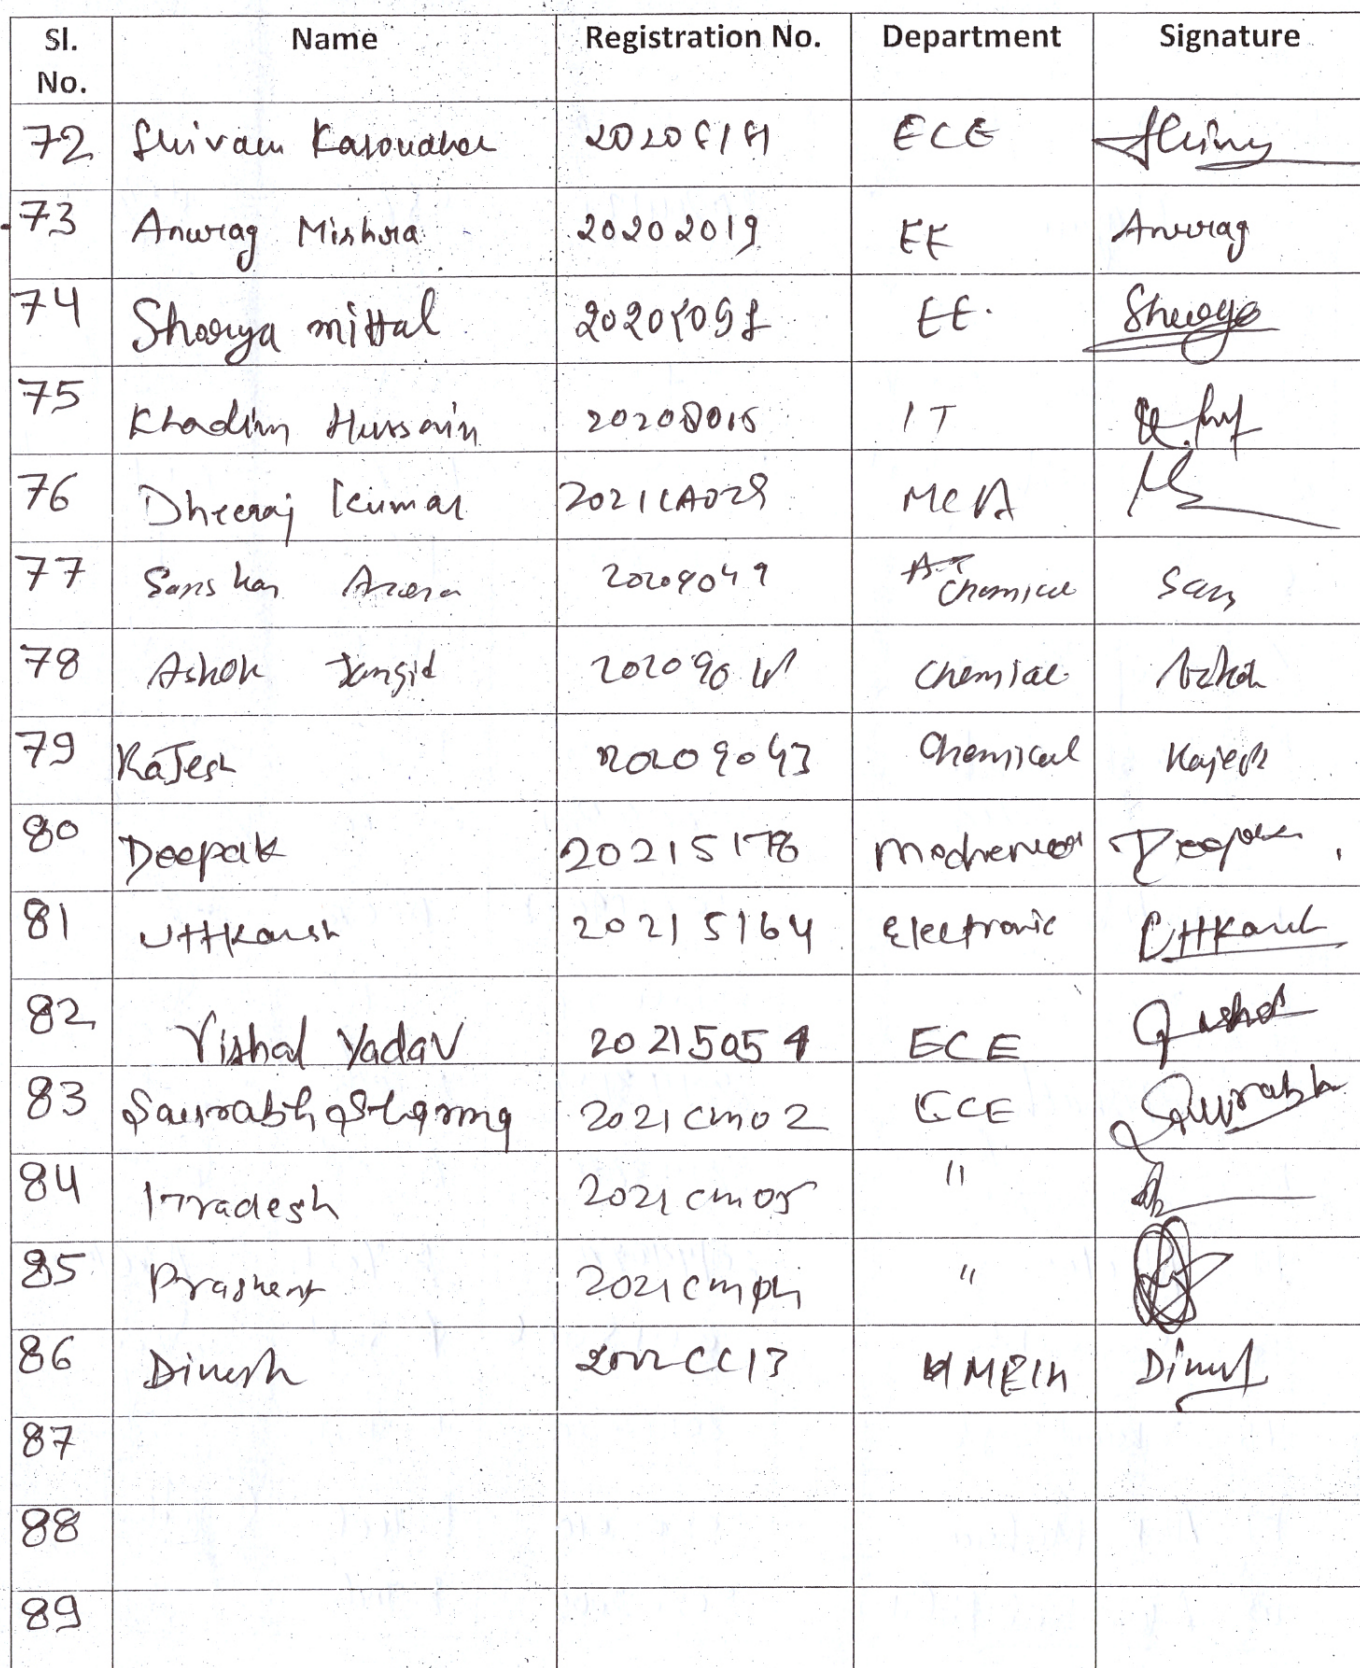 Sl. No. Name Registration No. Department Signature
72 Shivam ECE
73 Anurag Mishra 20202019 EE Anurag
74 Shourya mittal EE.
75 Khadim Hussain 20208015 IT
76 Dheeraj Kumar 2021CA029 MCA
77 Sanskar Arora 20209049 Chemical San
78 Ashok Jangid Chemical Ashok
79 RaJesh 20209043 Chemical Rajesh
80 Deepak 20215178 Deepak
81 Uttkarsh 20215164 Electronic Uttkarsh
82 Vishal Yadav 20215054 ECE
83 Saurabh Sharma 2021cm02 ECE Saurabh
84 2021cm05 "
85 Prashant "
86 Dinesh Dinesh
87
88
89